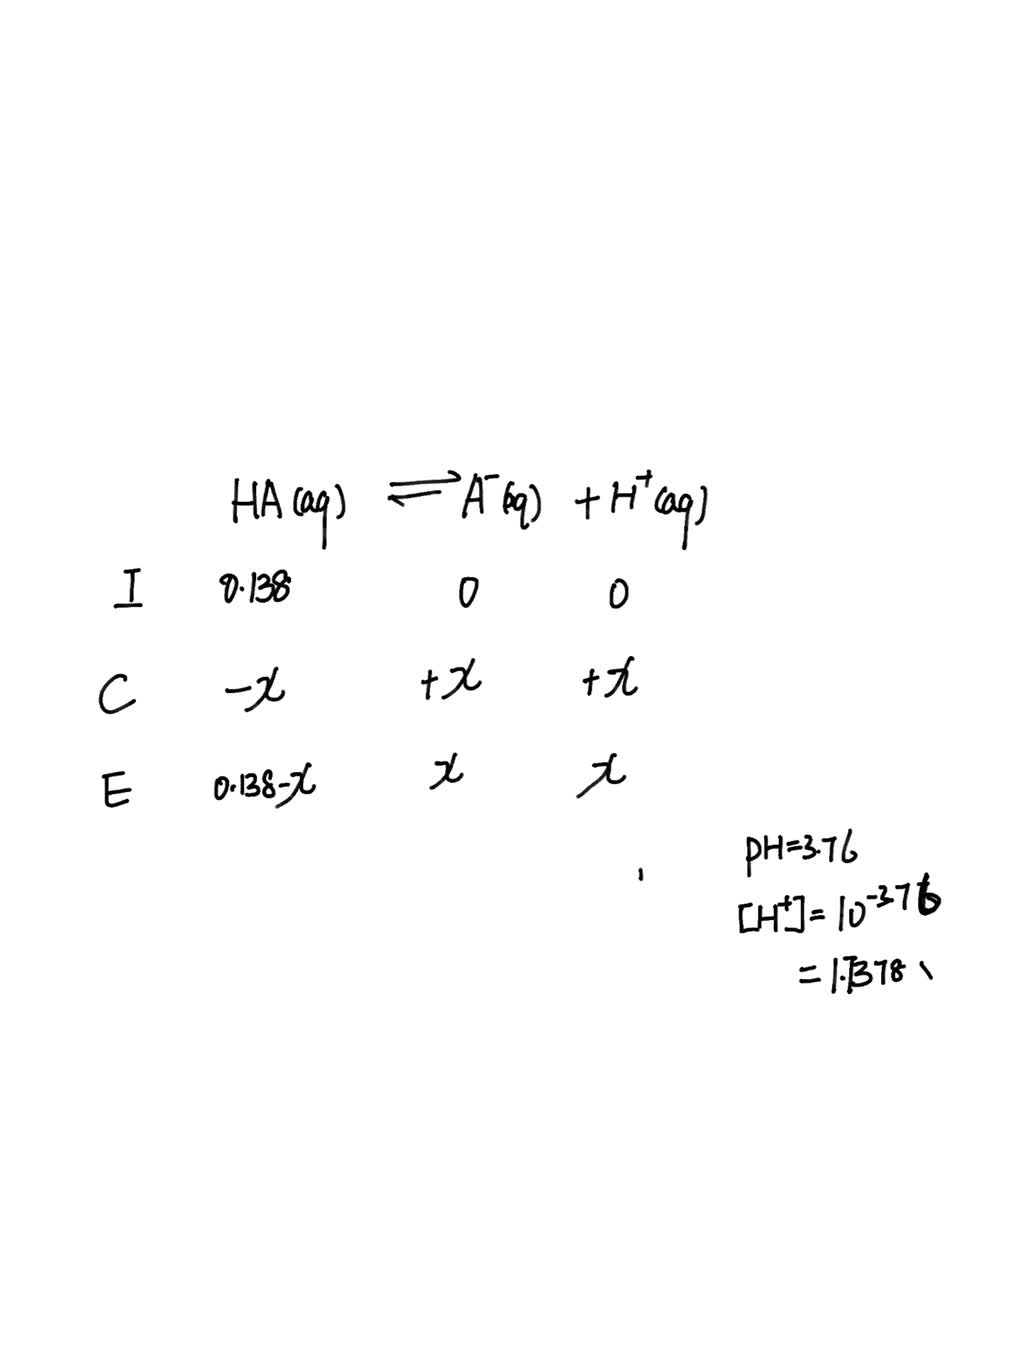 HA(aq) ⇌ A⁻(aq) + H⁺(aq)
I 0.138 0 0
C -x +x +x
E 0.138-x x x
pH=3.76
[H⁺]=10⁻³·⁷⁶
=1.7378